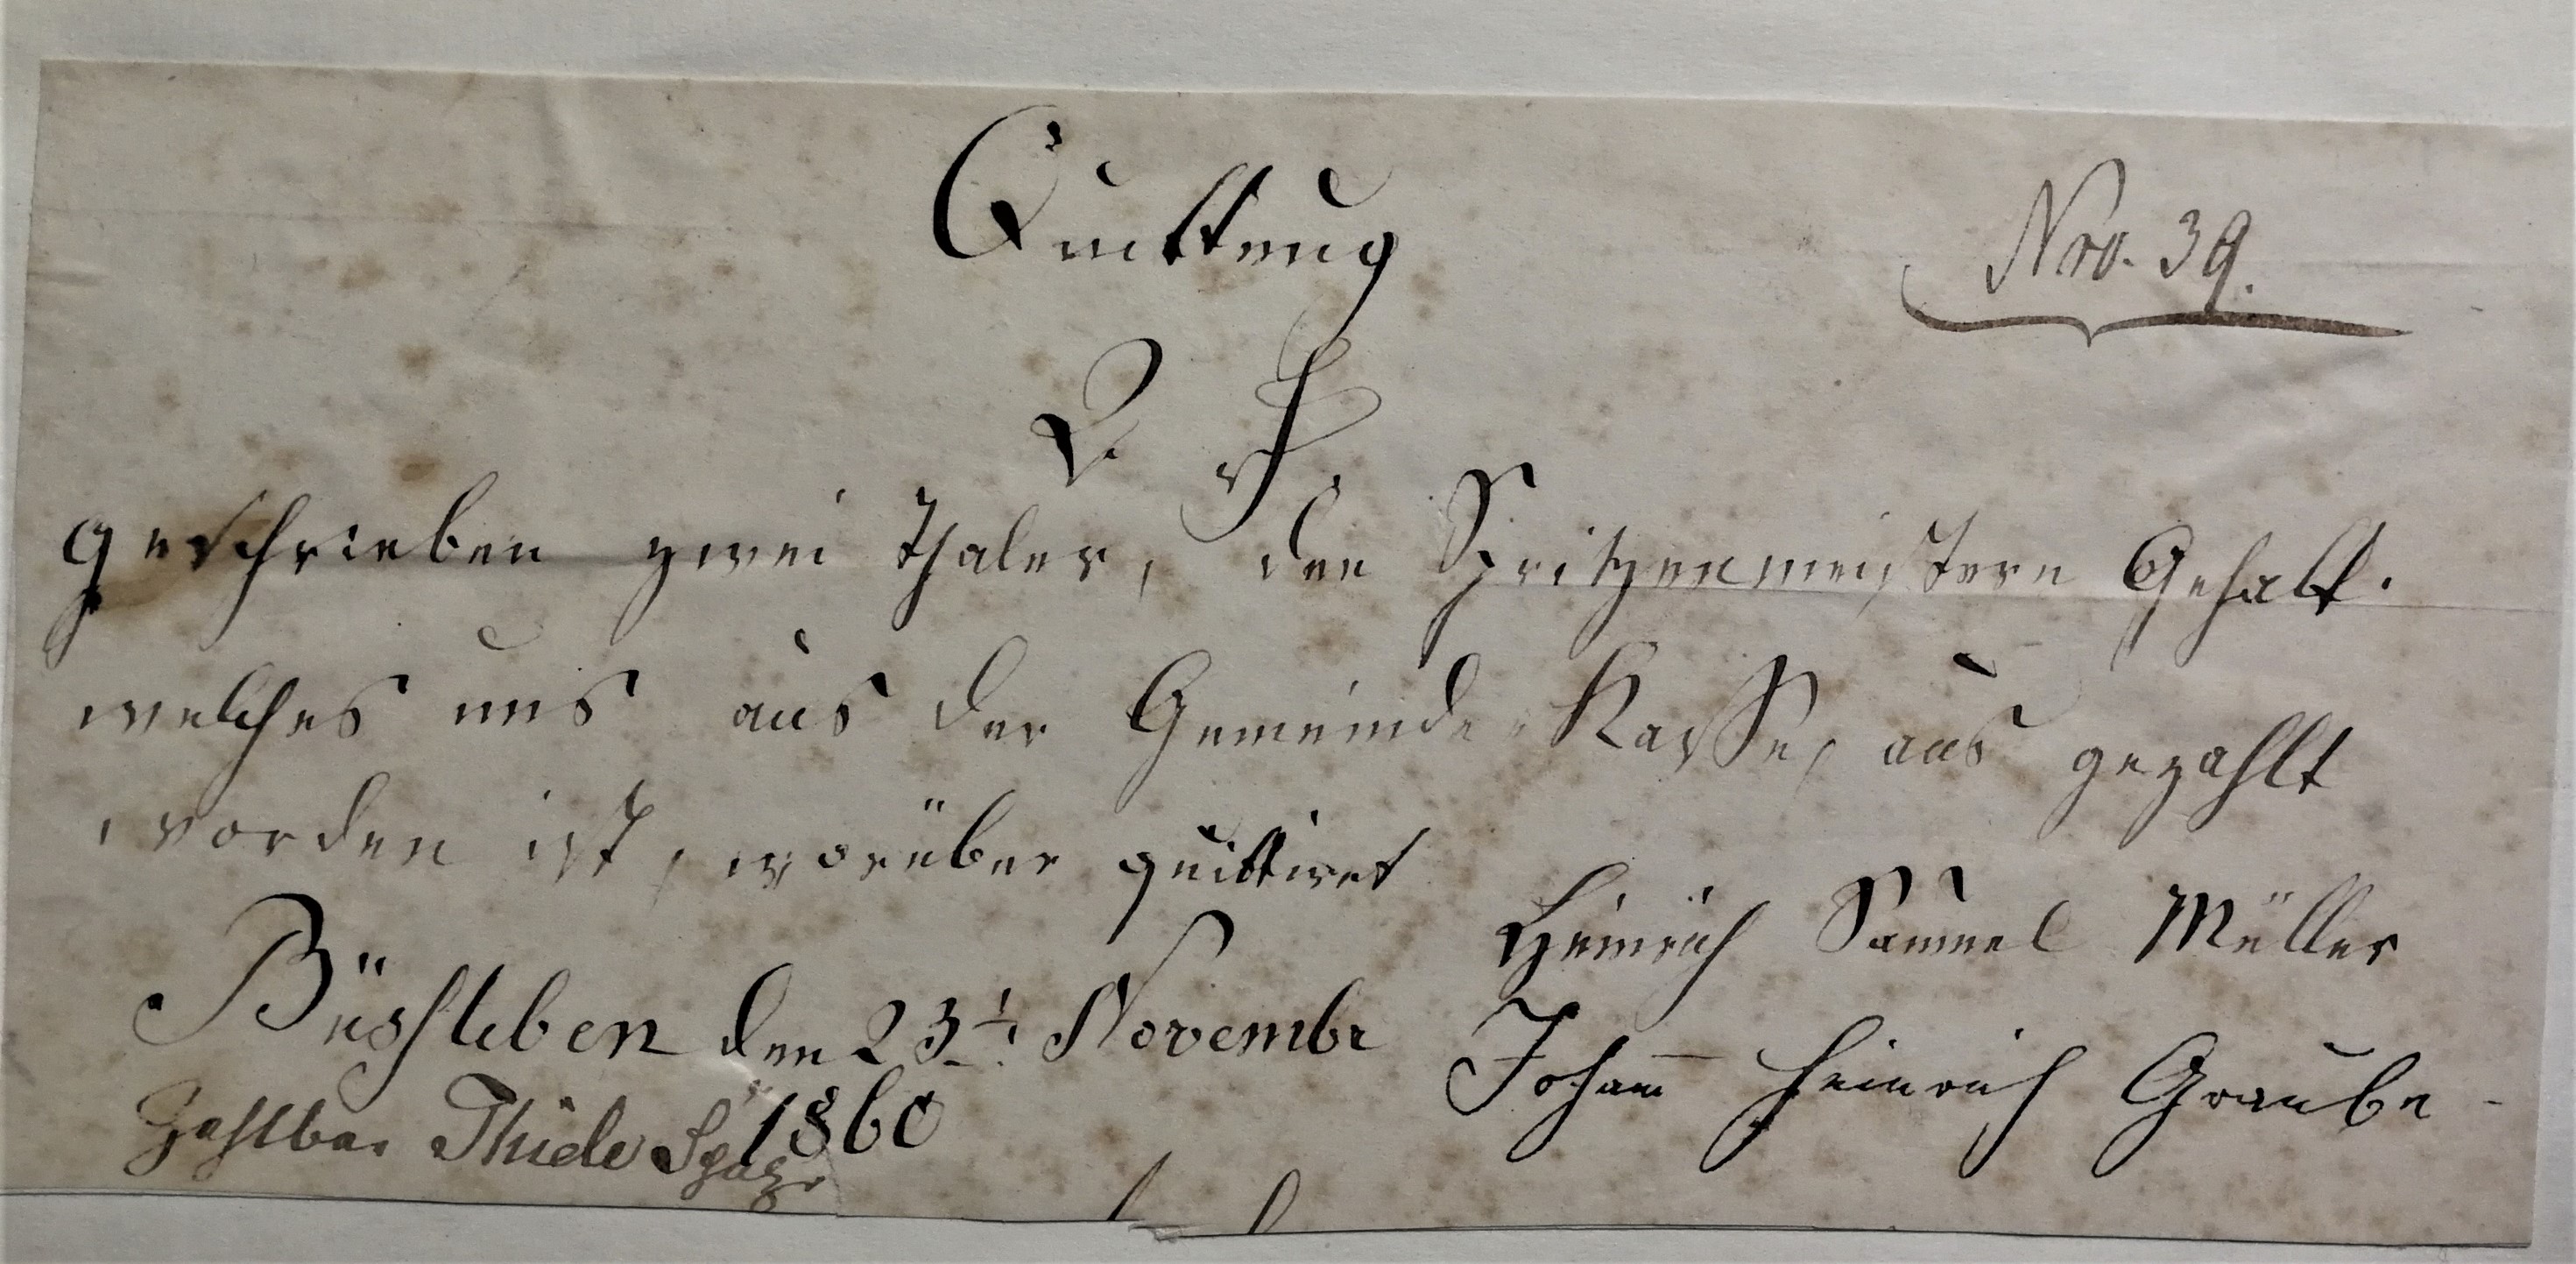 Quittung
Nro. 39.
2 rh.
geschrieben zwei Thaler, den Spritzenmeistern Gehalt.
welches uns aus der Gemeinde Kasse, aus gezahlt
worden ist, worüber quittiret
Heinrich Samuel Müller
Büssleben den 23t. Novembr
Johann Heinrich Graube
1860
Zahlbar Thiele